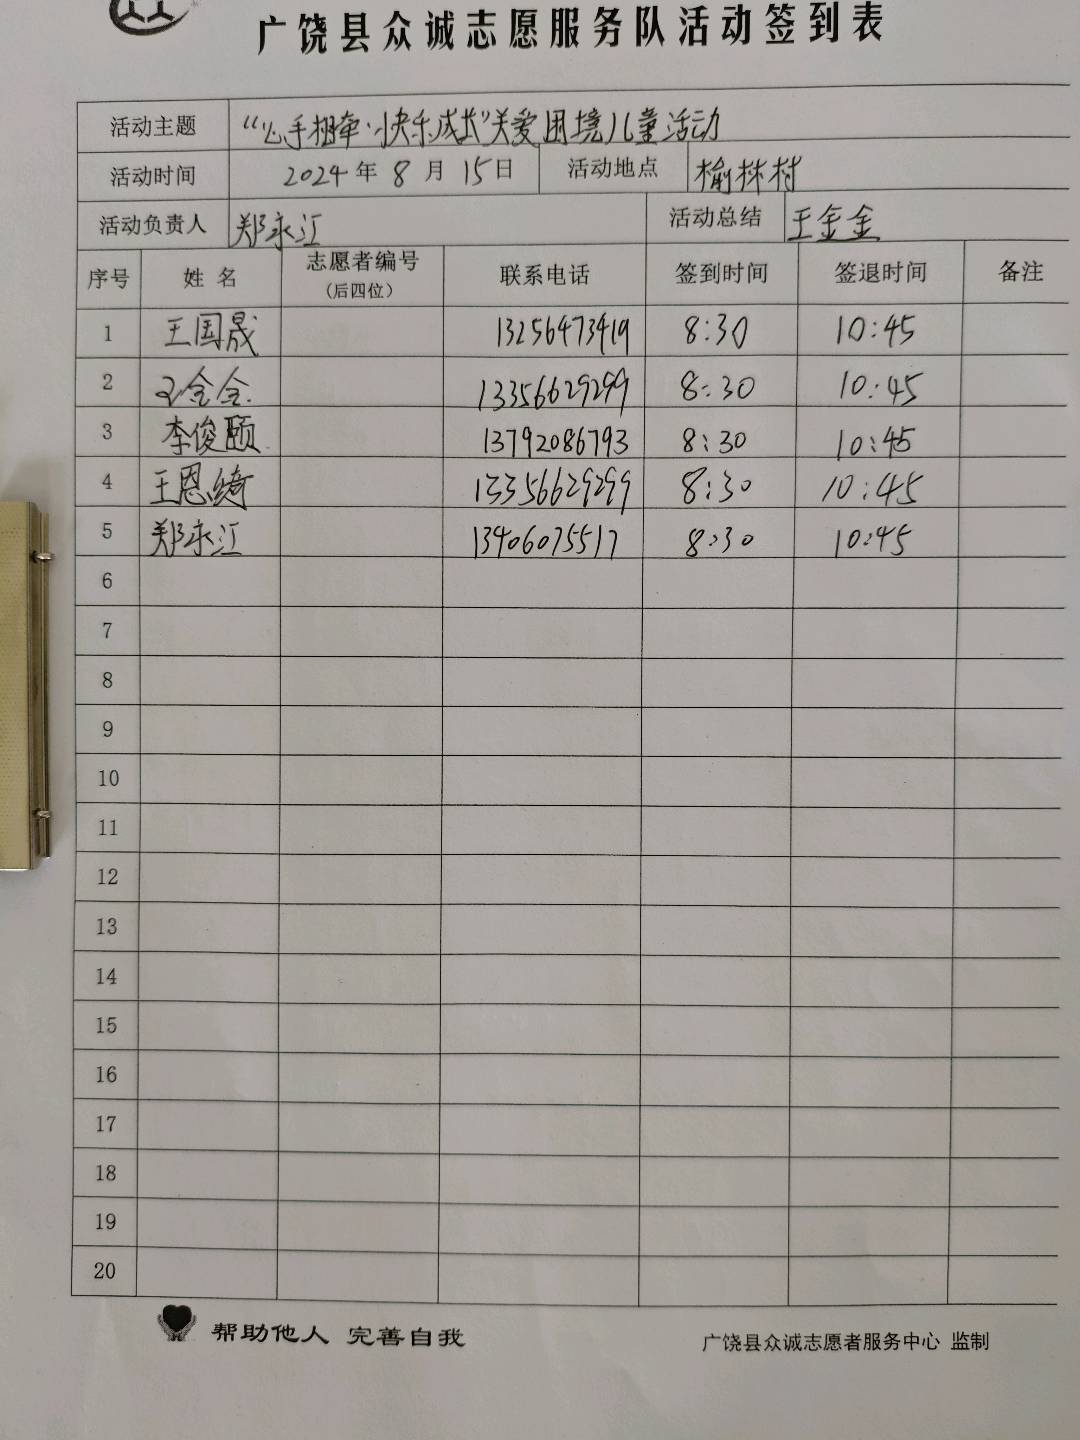 广饶县众诚志愿服务队活动签到表
活动主题 “心手相牵·快乐成长”关爱困境儿童活动
活动时间 2024年8月15日 活动地点 榆林村
活动负责人 郑永江 活动总结 王金金
序号 姓名 志愿者编号(后四位) 联系电话 签到时间 签退时间 备注
1 王国晟 13256473419 8:30 10:45
2 王金金 13356629299 8:30 10:45
3 李俊颐 13792086793 8:30 10:45
4 王恩绮 13356629299 8:30 10:45
5 郑永江 13406075517 8:30 10:45
6
7
8
9
10
11
12
13
14
15
16
17
18
19
20
帮助他人 完善自我 广饶县众诚志愿者服务中心 监制